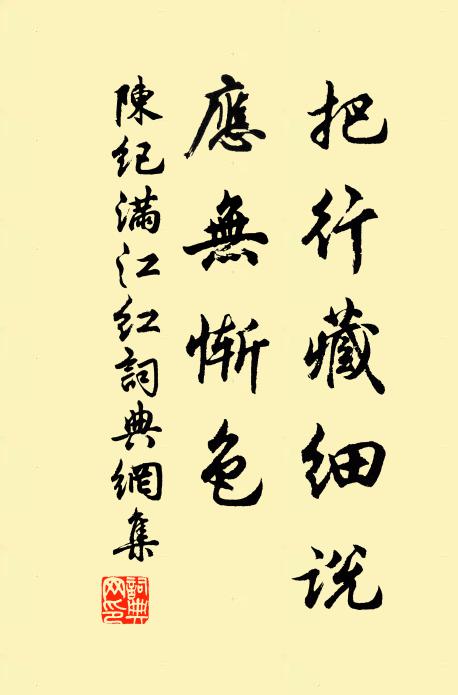 把行藏細說
應無慚色
陳紀滿江紅詞典網集
詞典网印